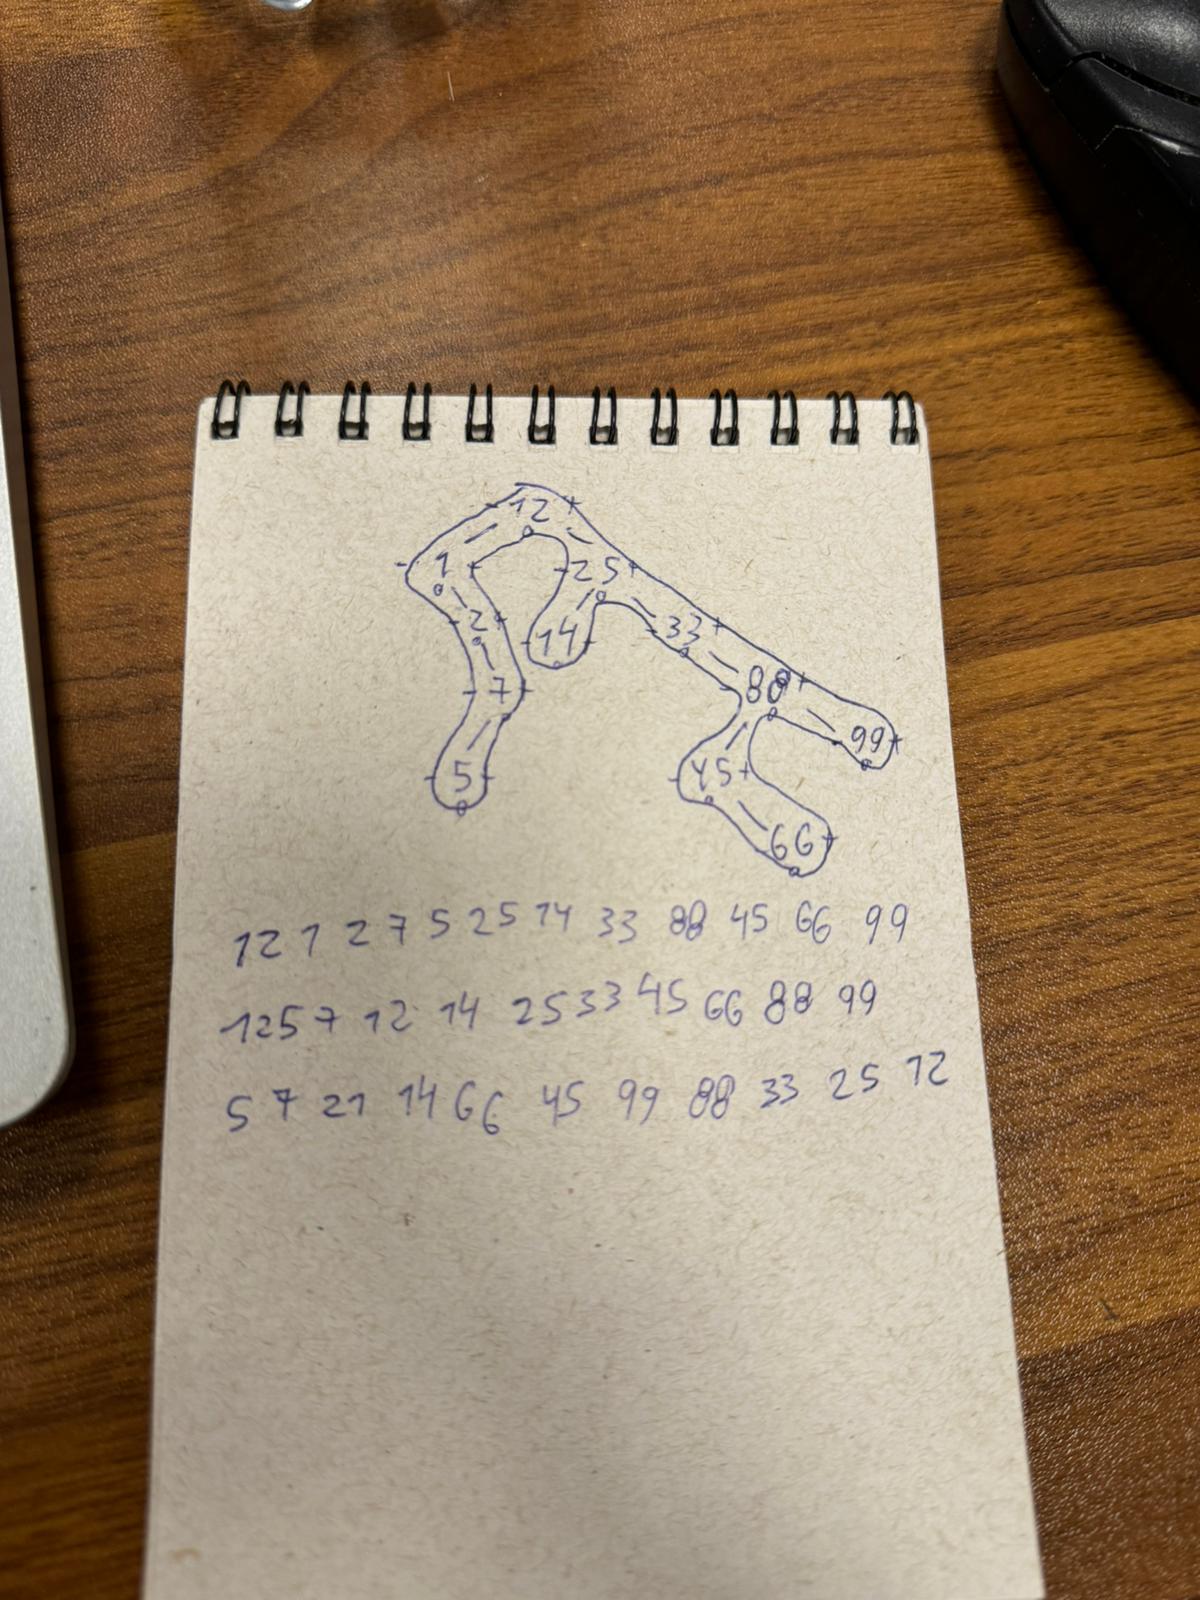 12
1 25
2 14 33
7 88
5 45 99
66
12 1 2 7 5 25 14 33 88 45 66 99
1 2 5 7 12 14 25 33 45 66 88 99
5 7 2 1 14 66 45 99 88 33 25 12